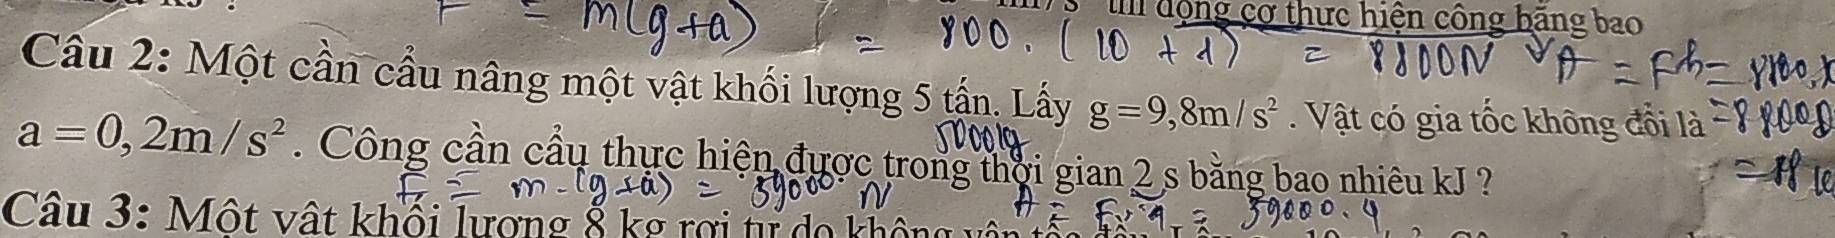 F = m(g+a) = 800. (10 + 1) = 8800N
động cơ thực hiện công bằng bao
A = Fh =
Câu 2: Một cần cẩu nâng một vật khối lượng 5 tấn. Lấy g = 9,8m/s². Vật có gia tốc không đổi là
5000kg
a = 0,2m/s². Công cần cẩu thực hiện được trong thời gian 2 s bằng bao nhiêu kJ ?
F = m.(g+a) = 59000 N
Câu 3: Một vật khối lượng 8 kg rơi tự do không vận tốc đầu